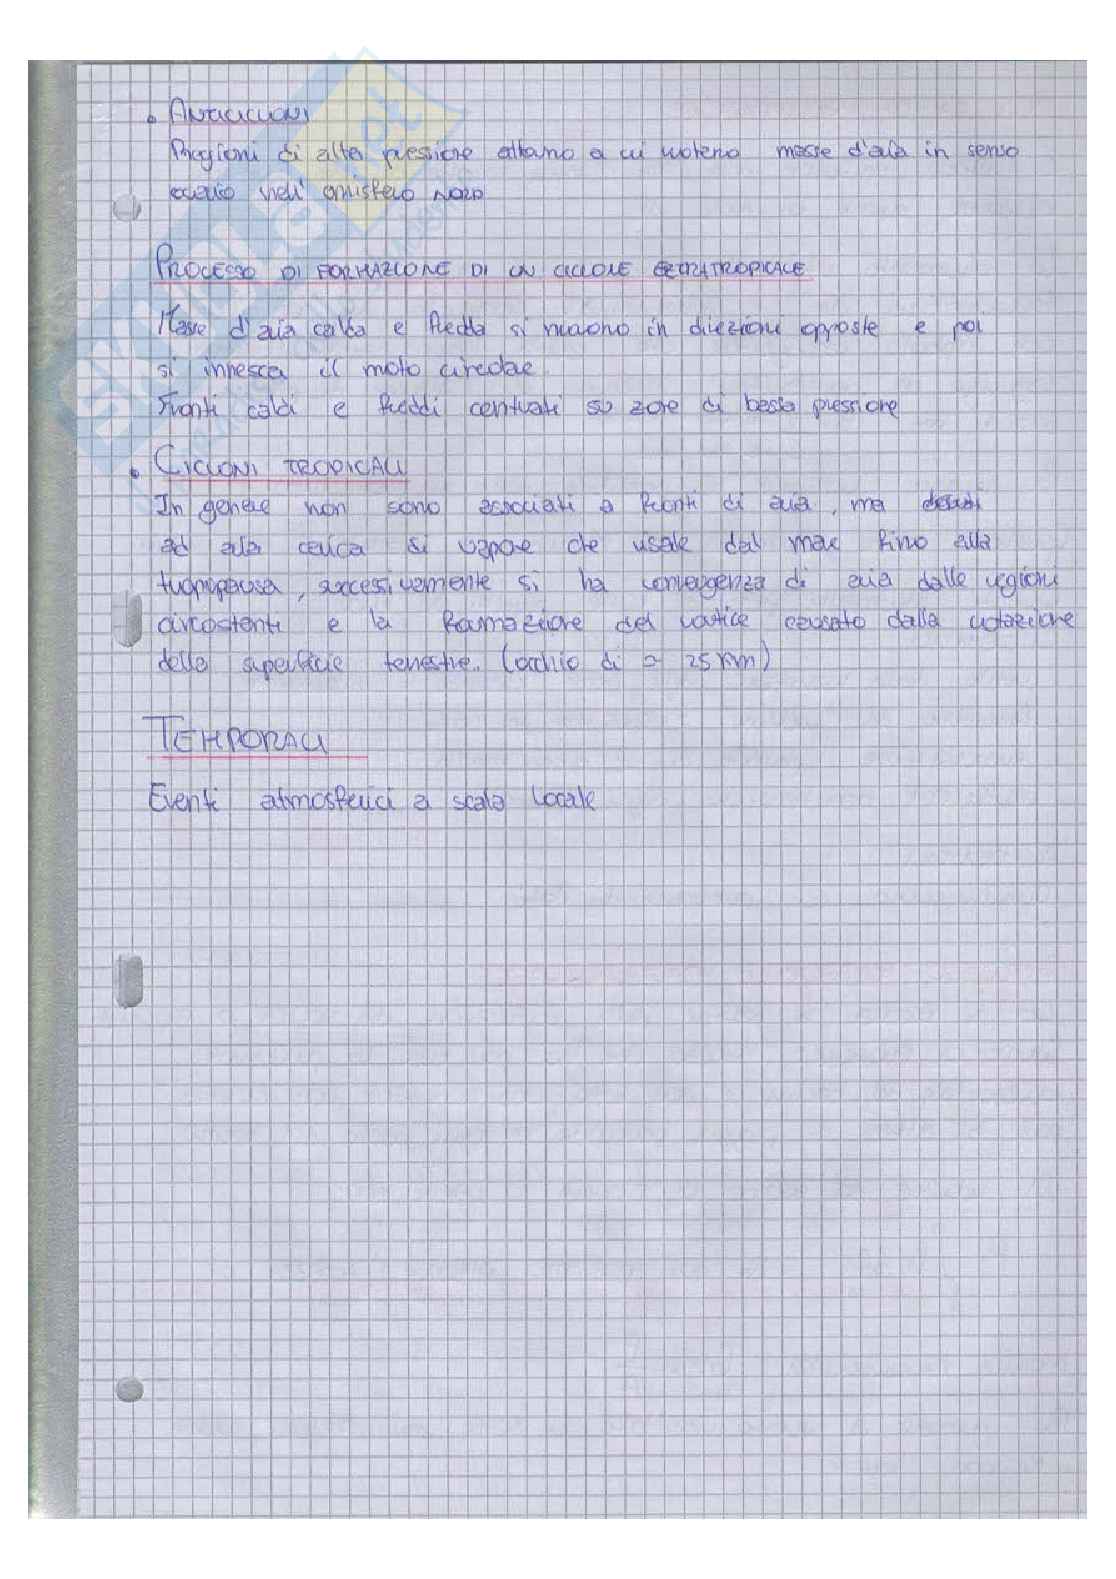 • ANTICICLONI
Regioni di alta pressione attorno a cui ruotano masse d'aria in senso
orario nell' emisfero NORD
PROCESSO DI FORMAZIONE DI UN CICLONE EXTRATROPICALE
Masse d'aria calda e fredda si muovono in direzioni opposte e poi
si innesca il moto circolare.
Fronti caldi e freddi centrati su zone di bassa pressione
• CICLONI TROPICALI
In genere non sono associati a fronti di aria, ma
ad aria carica di vapore che risale dal mare fino alla
tropopausa, successivamente si ha convergenza di aria dalle regioni
circostanti e la formazione del vortice causato dalla rotazione
della superficie terrestre. (occhio di 25 km)
TEMPORALI
Eventi atmosferici a scala locale
SKUOLA.net